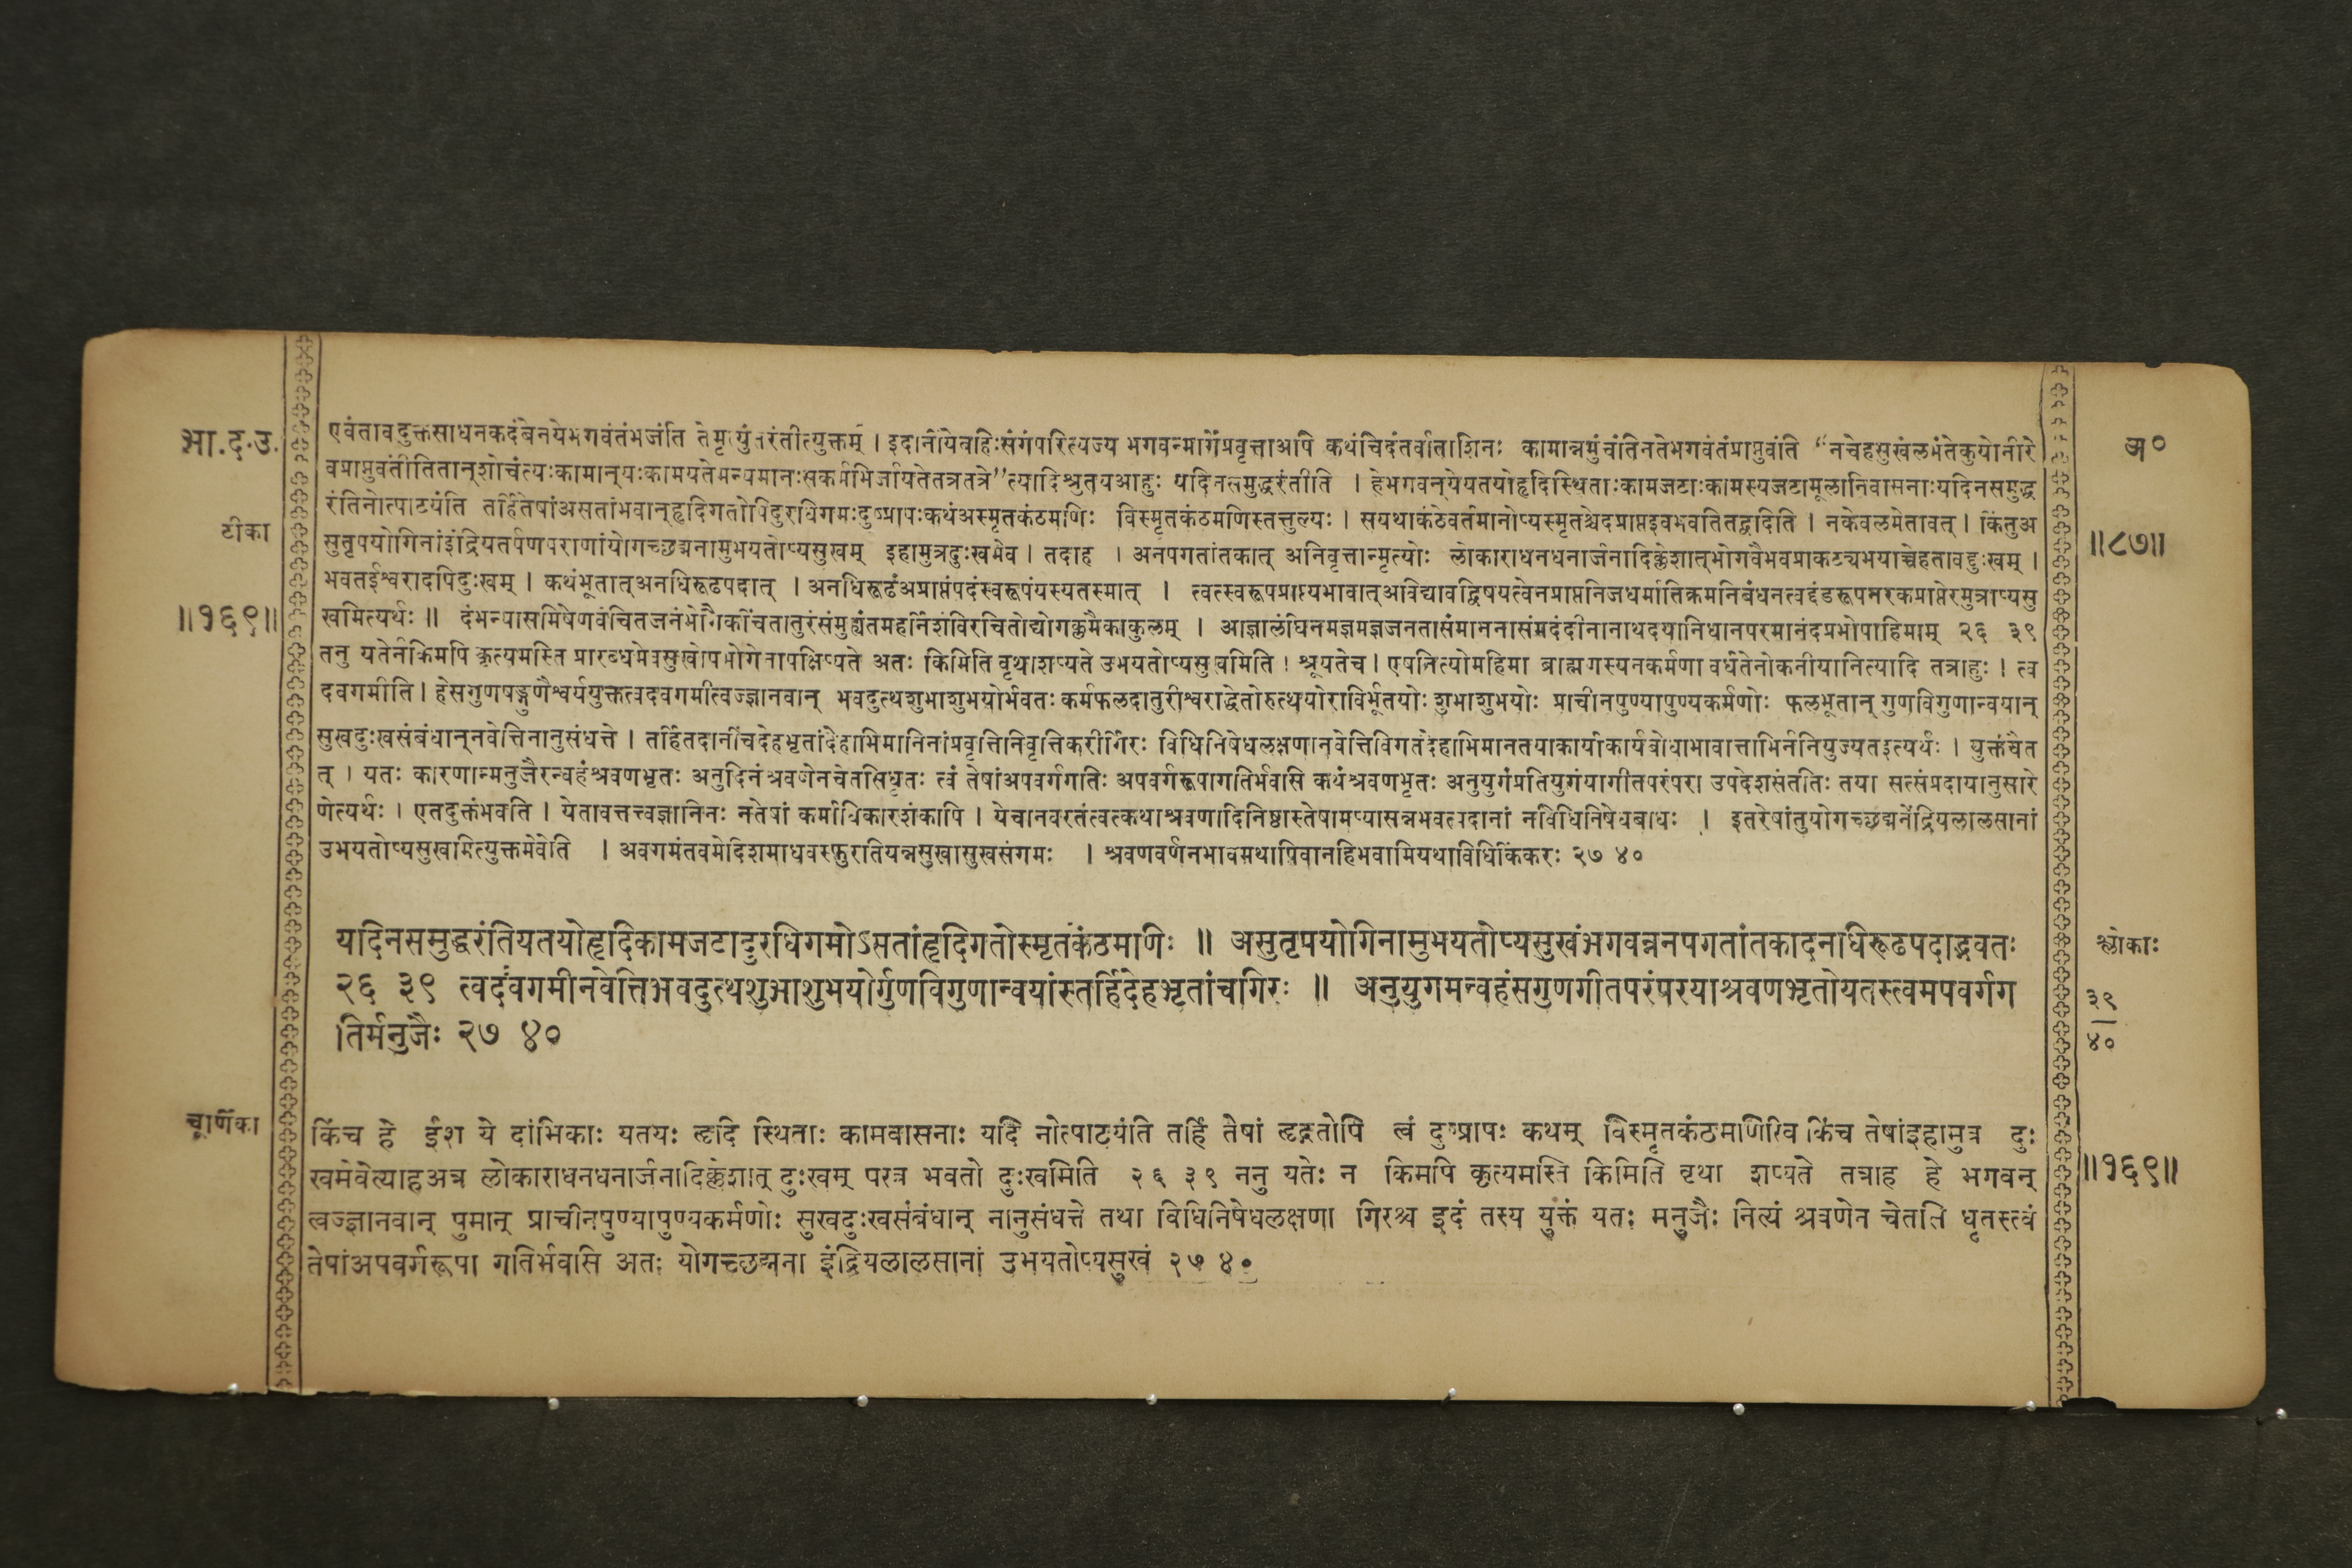 भा.द.उ.
टीका
॥१६९॥
अ०
॥८७॥
एवंतावदुक्तसाधनकदंबेनयेभगवंतंभजंति तेमृत्युंतरंतीत्युक्तम् । इदानींयेबहिःसंगंपरित्यज्य भगवन्मार्गेप्रवृत्ताअपि कथंचिदंतर्वांताशिनः कामान्नमुंचंतिनतेभगवंतंप्राप्नुवंति “नचेहसुखंलभंतेकुयोनीरे
वप्राप्नुवंतीतितान्शोचंत्यःकामान्यःकामयतेमन्यमानःसकर्मभिर्जायतेतत्रतत्रे”त्यादिश्रुतयआहुः यदिनसमुद्धरंतीति । हेभगवन्येयतयोहृदिस्थिताःकामजटाःकामस्यजटामूलानिवासनाःयदिनसमुद्ध
रंतिनोत्पाटयंति तर्हितेषांअसतांभवान्हृदिगतोपिदुरधिगमःदुष्प्रापःकथंअस्मृतकंठमणिः विस्मृतकंठमणिस्तत्तुल्यः । सयथाकंठेवर्तमानोप्यस्मृतश्चेदप्राप्तइवभवतितद्वदिति । नकेवलमेतावत् । किंतुअ
सुतृपयोगिनांइंद्रियतर्पणपराणांयोगच्छद्मनामुभयतोप्यसुखम् इहामुत्रदुःखमेव । तदाह । अनपगतांतकात् अनिवृत्तान्मृत्योः लोकाराधनधनार्जनादिक्लेशात्भोगवैभवप्राकट्यभयाच्चेहतावद्दुःखम् ।
भवतईश्वरादपिदुःखम् । कथंभूतात्अनधिरूढपदात् । अनधिरूढंअप्राप्तंपदंस्वरूपंयस्यतस्मात् । त्वत्स्वरूपप्राप्त्यभावात्अविद्यावद्विषयत्वेनप्राप्तनिजधर्मातिक्रमनिबंधनत्वद्दंडरूपनरकप्राप्तेरमुत्राप्यसु
खमित्यर्थः ॥ दंभन्यासमिषेणवंचितजनंभोगैकचिंतातुरंसंमुह्यंतमहर्निशंविरचितोद्योगक्लमैकाकुलम् । आज्ञालंघिनमज्ञमज्ञजनतासंमाननासंमदंदीनानाथदयानिधानपरमानंदप्रभोपाहिमाम् २६ ३९
ननु यतेर्नकिमपि कृत्यमस्ति प्रारब्धमेवसुखोपभोगेनापक्षिप्यते अतः किमिति वृथाशप्यते उभयतोप्यसुखमिति । श्रूयतेच । एषनित्योमहिमा ब्राह्मणस्यनकर्मणा वर्धतेनोकनीयानित्यादि तत्राहुः । त्व
दवगमीति । हेसगुणषड्गुणैश्वर्ययुक्तत्वदवगमीत्वज्ज्ञानवान् भवदुत्थशुभाशुभयोर्भवतः कर्मफलदातुरीश्वराद्धेतोरुत्थयोराविर्भूतयोः शुभाशुभयोः प्राचीनपुण्यापुण्यकर्मणोः फलभूतान् गुणविगुणान्वयान्
सुखदुःखसंबंधान्नवेत्तिनानुसंधत्ते । तर्हितदानींचदेहभृतांदेहाभिमानिनांप्रवृत्तिनिवृत्तिकरीर्गिरः विधिनिषेधलक्षणानवेत्तिविगतदेहाभिमानतयाकार्याकार्यबोधाभावात्ताभिर्ननियुज्यतइत्यर्थः । युक्तंचैत
त् । यतः कारणान्मनुजैरन्वहंश्रवणभृतः अनुदिनंश्रवणेनचेतसिधृतः त्वं तेषांअपवर्गगतिः अपवर्गरूपागतिर्भवसि कथंश्रवणभृतः अनुयुगंप्रतियुगंयागीतपरंपरा उपदेशसंततिः तया सत्संप्रदायानुसारे
णेत्यर्थः । एतदुक्तंभवति । येतावत्तत्त्वज्ञानिनः नतेषां कर्माधिकारशंकापि । येचानवरतंत्वत्कथाश्रवणादिनिष्ठास्तेषामप्यासन्नभवत्पदानां नविधिनिषेधबाधः । इतरेषांतुयोगच्छद्मनेंद्रियलालसानां
उभयतोप्यसुखमित्युक्तमेवेति । अवगमंतवमेदिशमाधवस्फुरतियन्नसुखासुखसंगमः । श्रवणवर्णनभावमथापिवानहिभवामियथाविधिकिंकरः २७ ४०
यदिनसमुद्धरंतियतयोहृदिकामजटादुरधिगमोऽसतांहृदिगतोस्मृतकंठमणिः ॥ असुतृपयोगिनामुभयतोप्यसुखंभगवन्ननपगतांतकादनाधिरूढपदाद्भवतः
२६ ३९ त्वदवगमीनवेत्तिभवदुत्थशुभाशुभयोर्गुणविगुणान्वयांस्तर्हिदेहभृतांचगिरः ॥ अनुयुगमन्वहंसगुणगीतपरंपरयाश्रवणभृतोयतस्त्वमपवर्गग
तिर्मनुजैः २७ ४०
श्लोकाः
३९
४०
चूर्णिका
किंच हे ईश ये दांभिकाः यतयः हृदि स्थिताः कामवासनाः यदि नोत्पाटयंति तर्हि तेषां हृद्गतोपि त्वं दुष्प्रापः कथम् विस्मृतकंठमणिरिव किंच तेषांइहामुत्र दुः
खमेवेत्याहअत्र लोकाराधनधनार्जनादिक्लेशात् दुःखम् परत्र भवतो दुःखमिति २६ ३९ ननु यतेः न किमपि कृत्यमस्ति किमिति वृथा शप्यते तत्राह हे भगवन्
त्वज्ज्ञानवान् पुमान् प्राचीनपुण्यापुण्यकर्मणोः सुखदुःखसंबंधान् नानुसंधत्ते तथा विधिनिषेधलक्षणा गिरश्च इदं तस्य युक्तं यतः मनुजैः नित्यं श्रवणेन चेतसि धृतस्त्वं
तेषांअपवर्गरूपा गतिर्भवसि अतः योगच्छद्मना इंद्रियलालसानां उभयतोप्यसुखं २७ ४०
॥१६९॥